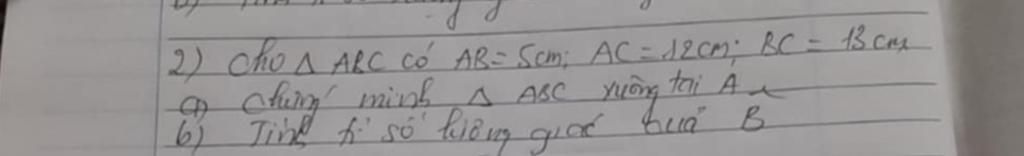 2) Cho Δ ABC có AB = 5cm; AC = 12cm; BC = 13cm
a) Chứng minh Δ ABC vuông tại A
b) Tính tỉ số lượng giác của B